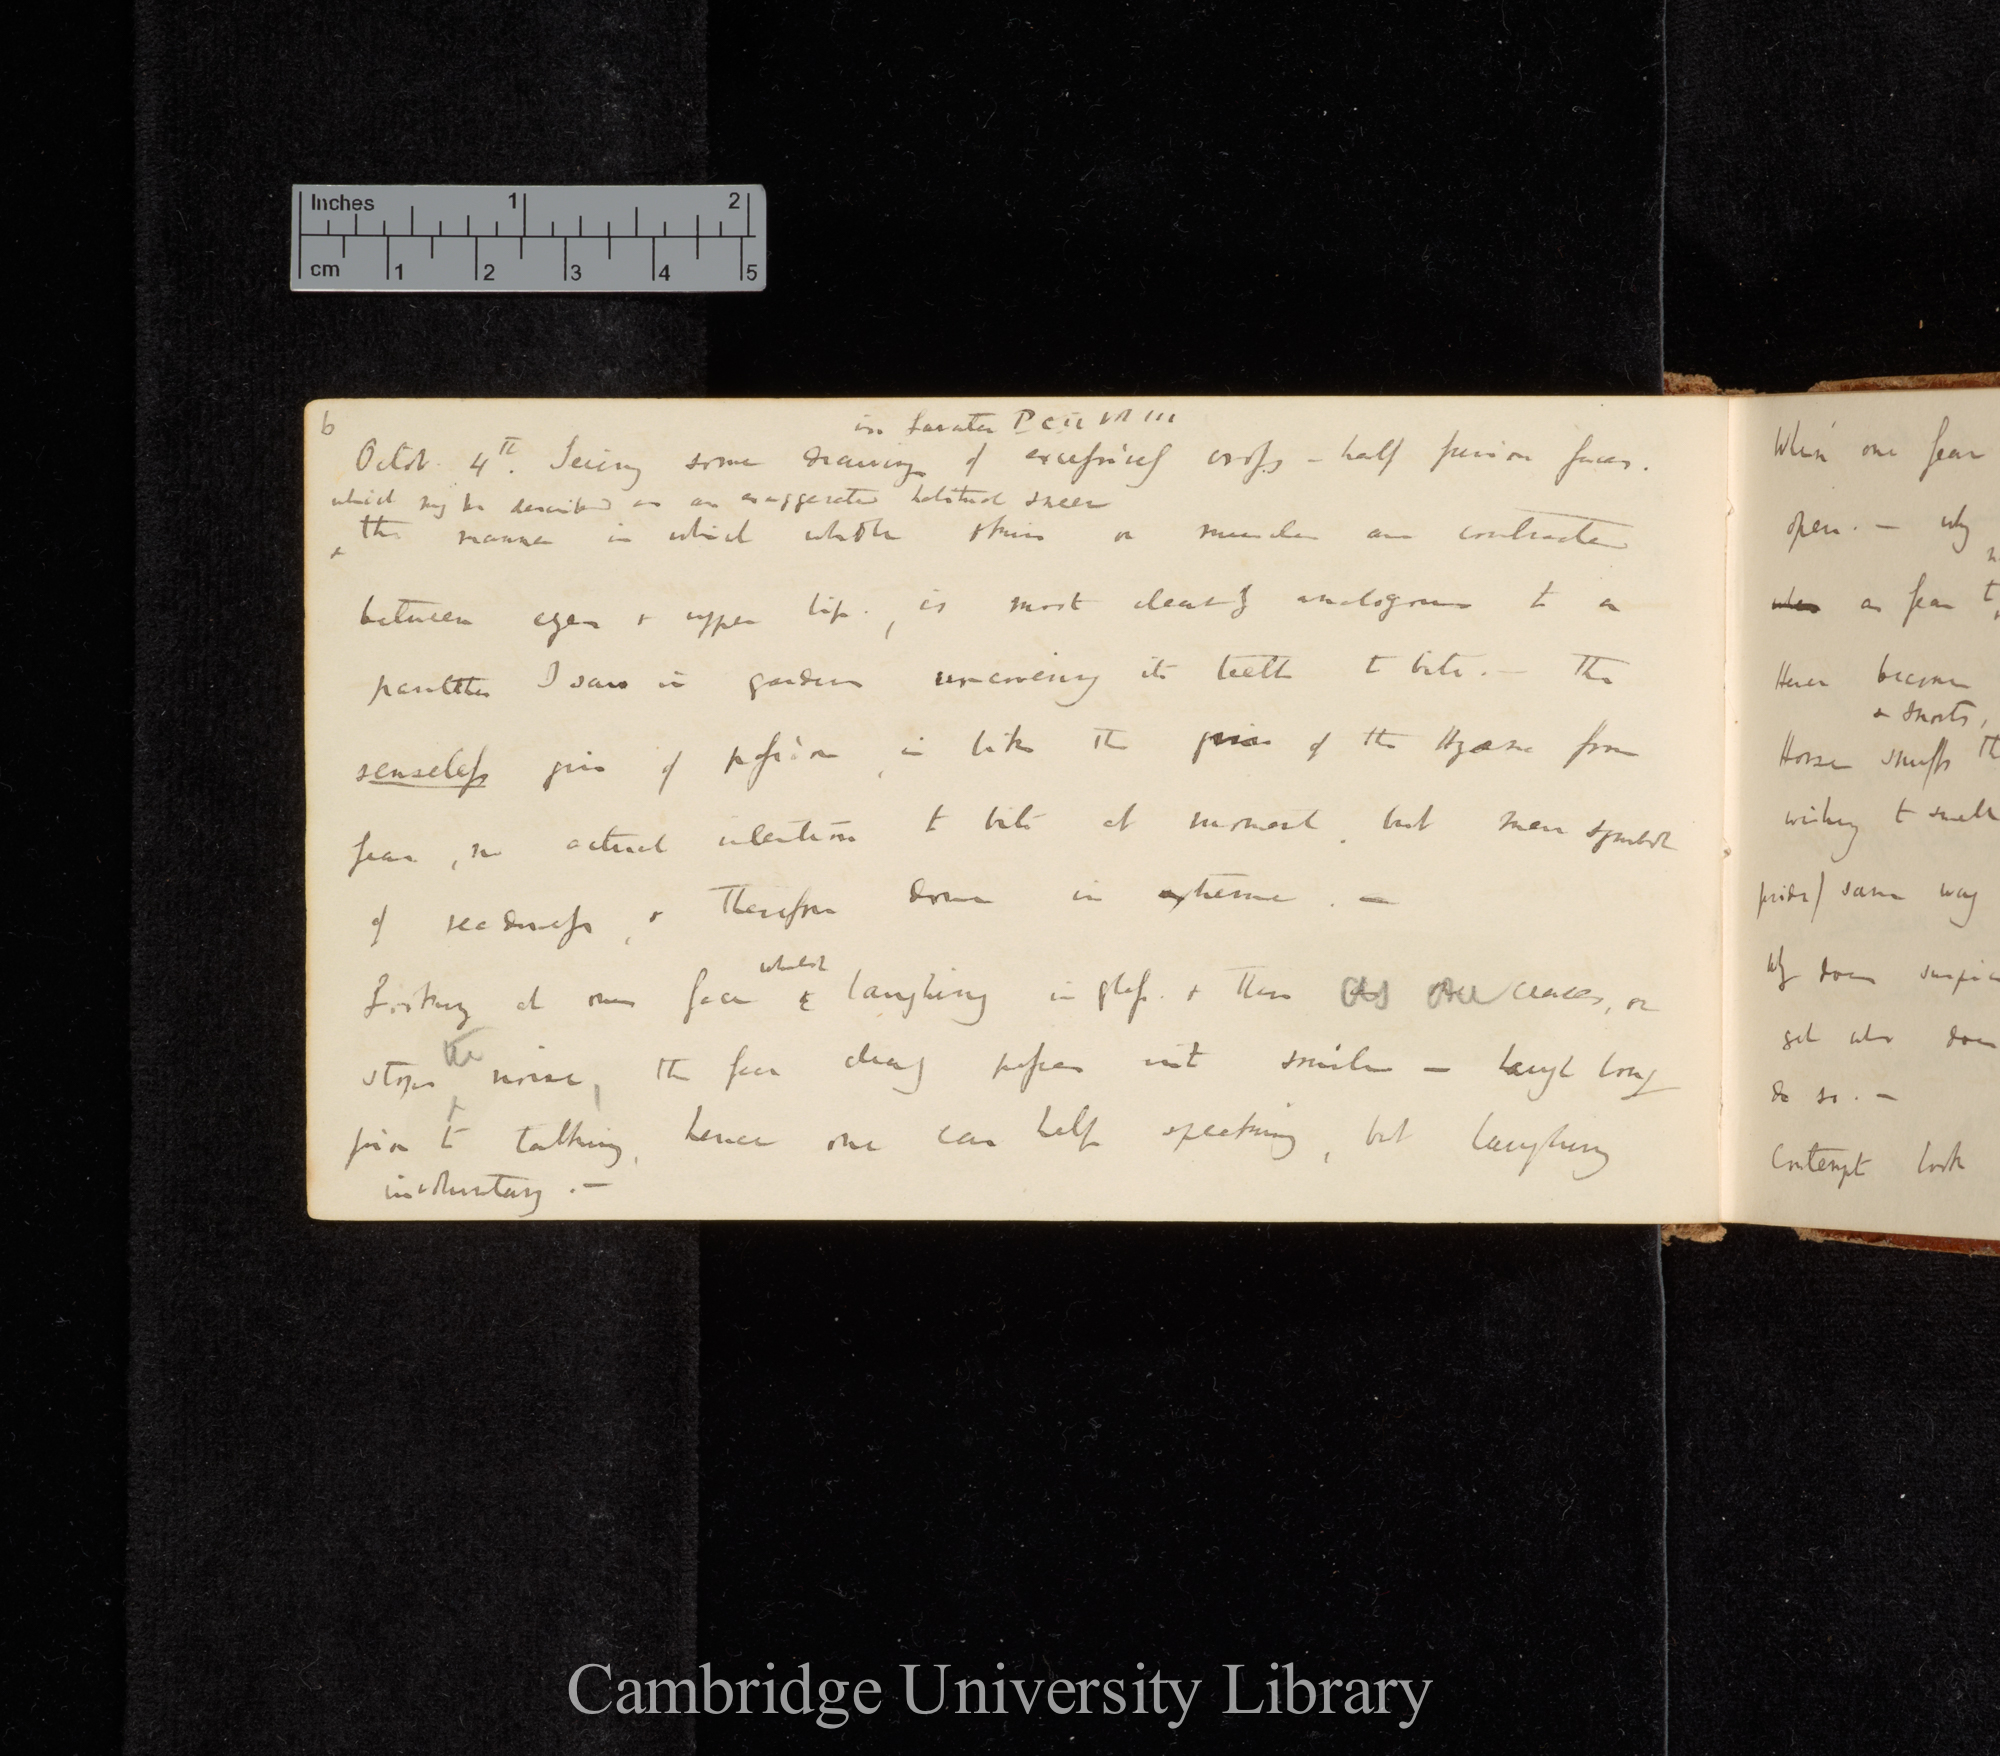 Inches 1 2
cm 1 2 3 4 5
6
in Lavater P CII VII III
Octob. 4th. Seeing some drawings of excessively cross – half passion faces.
which may be described as an exaggerated habitual sneer
& the manner in which whole skin or muscles are contracted
between eyes & upper lip., is most clearly analogous to a
panther I saw in gardens uncovering its teeth to bite. — The
senseless grin of passion, is like the grin of the Hyaena from
fear, no actual intention to bite at moment. but mere symbol
of readiness, & therefore done in extreme. —
whilst
Looking at ones face laughing in glass. & then ceases, or
the
stops noise, the face clearly passes into smile — laugh long
prior to talking, hence one can help speaking, but laughing
involuntary. —
When one fear
open. — why
when as fear
Hence become
& snorts,
Horse snuffs th
wishing to smell
pride) same way
Why does suspici
get who does
do so. —
Contempt look
Cambridge University Library